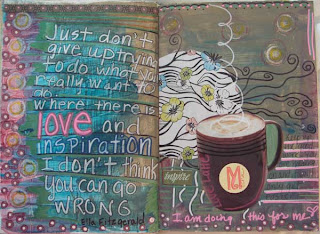 Just don't
give up trying
to do what you
really want to
do.
where there is
love and
inspiration
I don't think
you can go
WRONG
Ella Fitzgerald
M
inspire
I am doing this for me